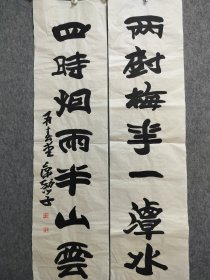 兩樹梅花一潭水
四時烟雨半山雲